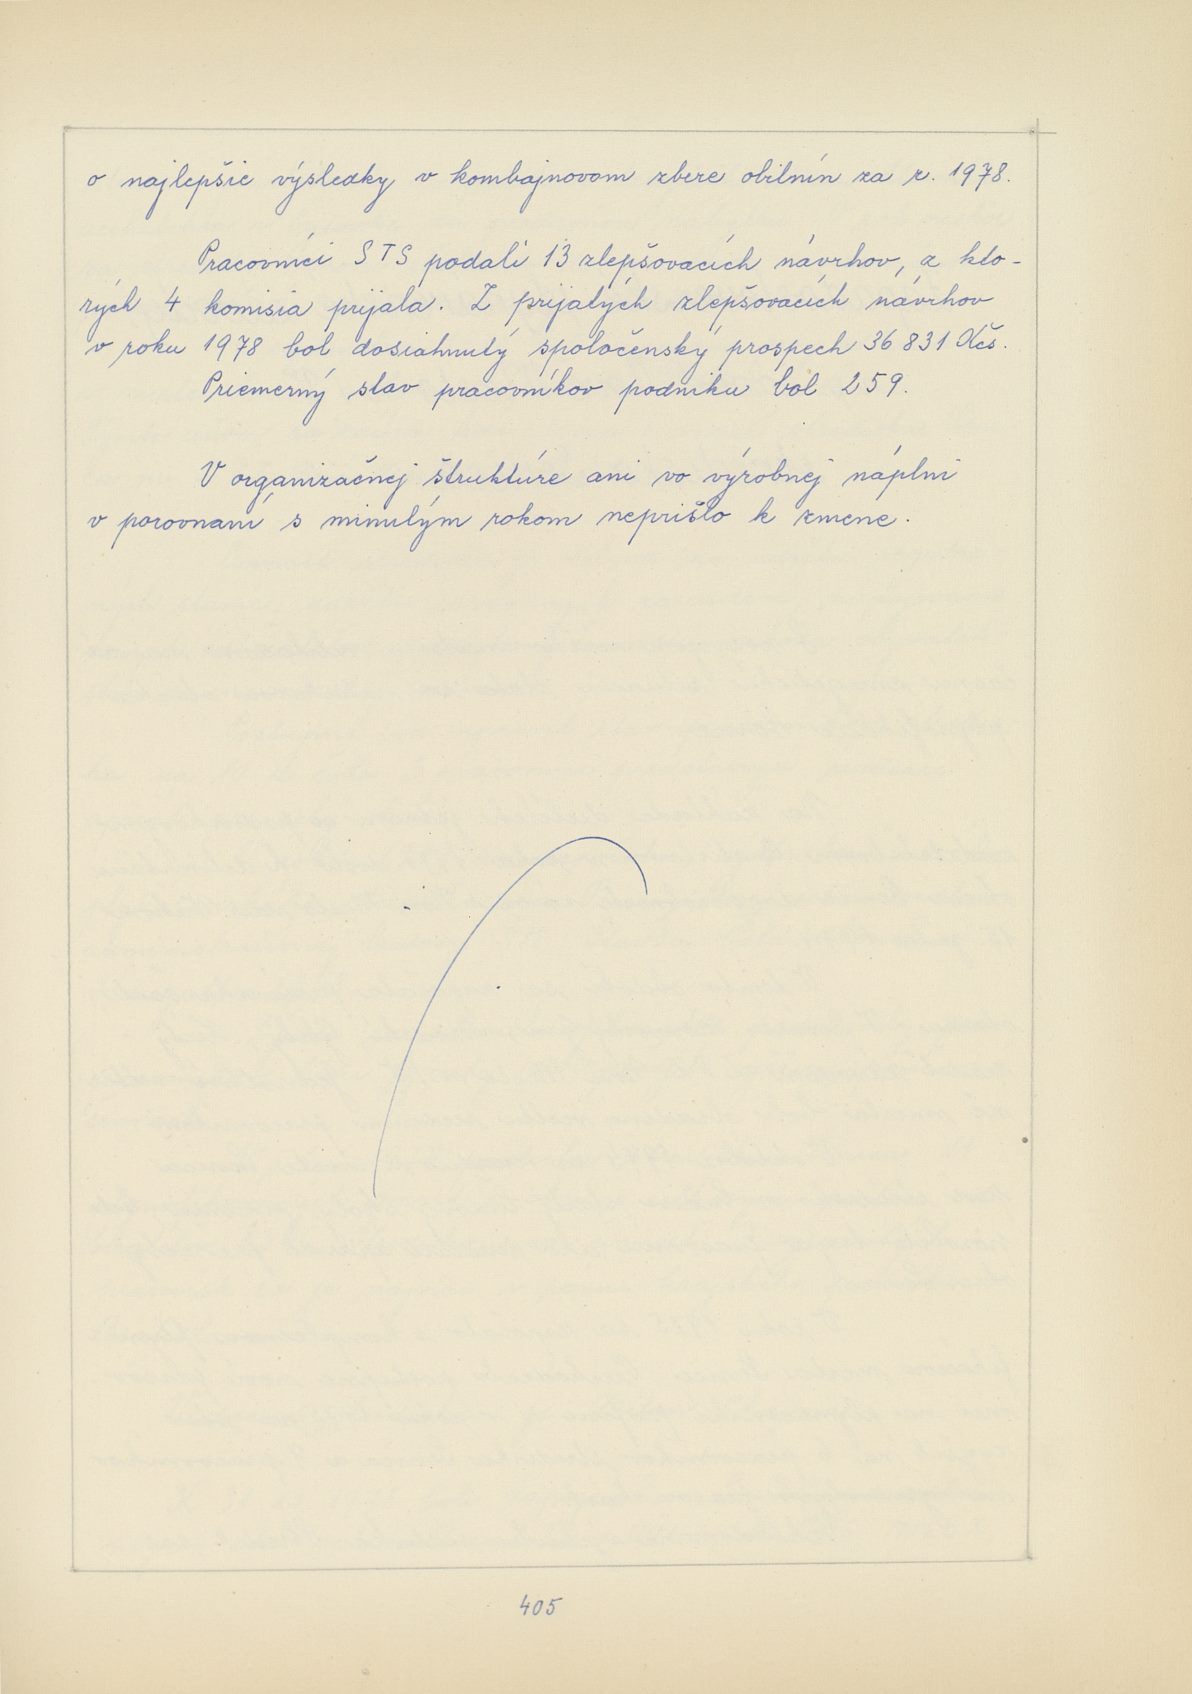 o najlepšie výsledky v kombajnovom zbere obilnín za r. 1978.
Pracovníci STS podali 13 zlepšovacích návrhov, z kto-
rých 4 komisia prijala. Z prijatých zlepšovacích návrhov
v roku 1978 bol dosiahnutý spoločenský prospech 36 831 Kčs.
Priemerný stav pracovníkov podniku bol 259.
V organizačnej štruktúre ani vo výrobnej náplni
v porovnaní s minulým rokom neprišlo k zmene.
405